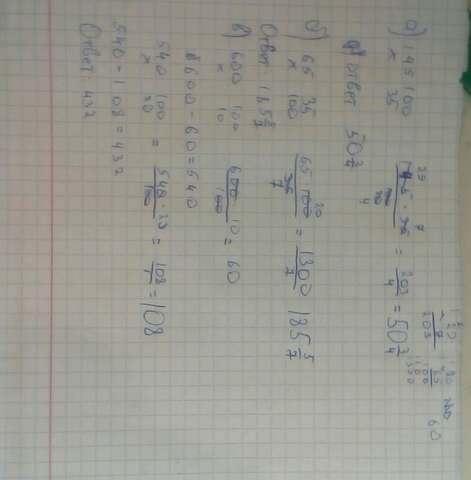 а) 145 100
x 35
145 · 35 / 100 = 203/4 = 50 3/4
Ответ 50 3/4
б) 65 35
x 100
65 100 / 35 = 1300/7 185 5/7
Ответ 185 5/7
в) 600 100
x 10
600 10 / 100 = 60
600 - 60 = 540
540 100
x 20
540 · 20 / 100 = 108/1 = 108
540 - 108 = 432
Ответ 432